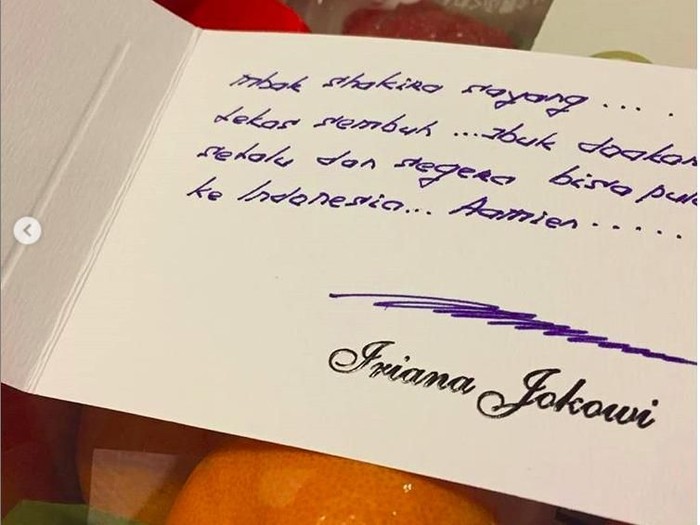 Mbak Shakira sayang ... .
Lekas sembuh ... Ibuk doakan
selalu dan segera bisa
ke Indonesia... Aamien .....
Iriana Jokowi